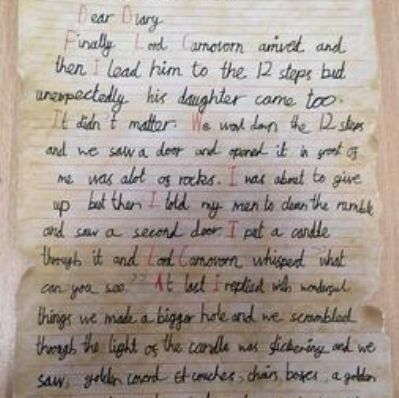 Dear Diary
Finally Lord Carnovorn arrived and
then I lead him to the 12 steps but
unexpectedly his daughter came too.
It didn't matter. We went down the 12 steps
and we saw a door and opened it in front of
me was alot of rocks. I was about to give
up but then I told my men to clean the rumble
and saw a second door I put a candle
through it and Lord Carnovorn whisped what
can you see?? At last I replied with wonderful
things we made a bigger hole and we scrambled
through the light of the candle was flickering and we
saw, golden couches, chairs, boxes, a golden